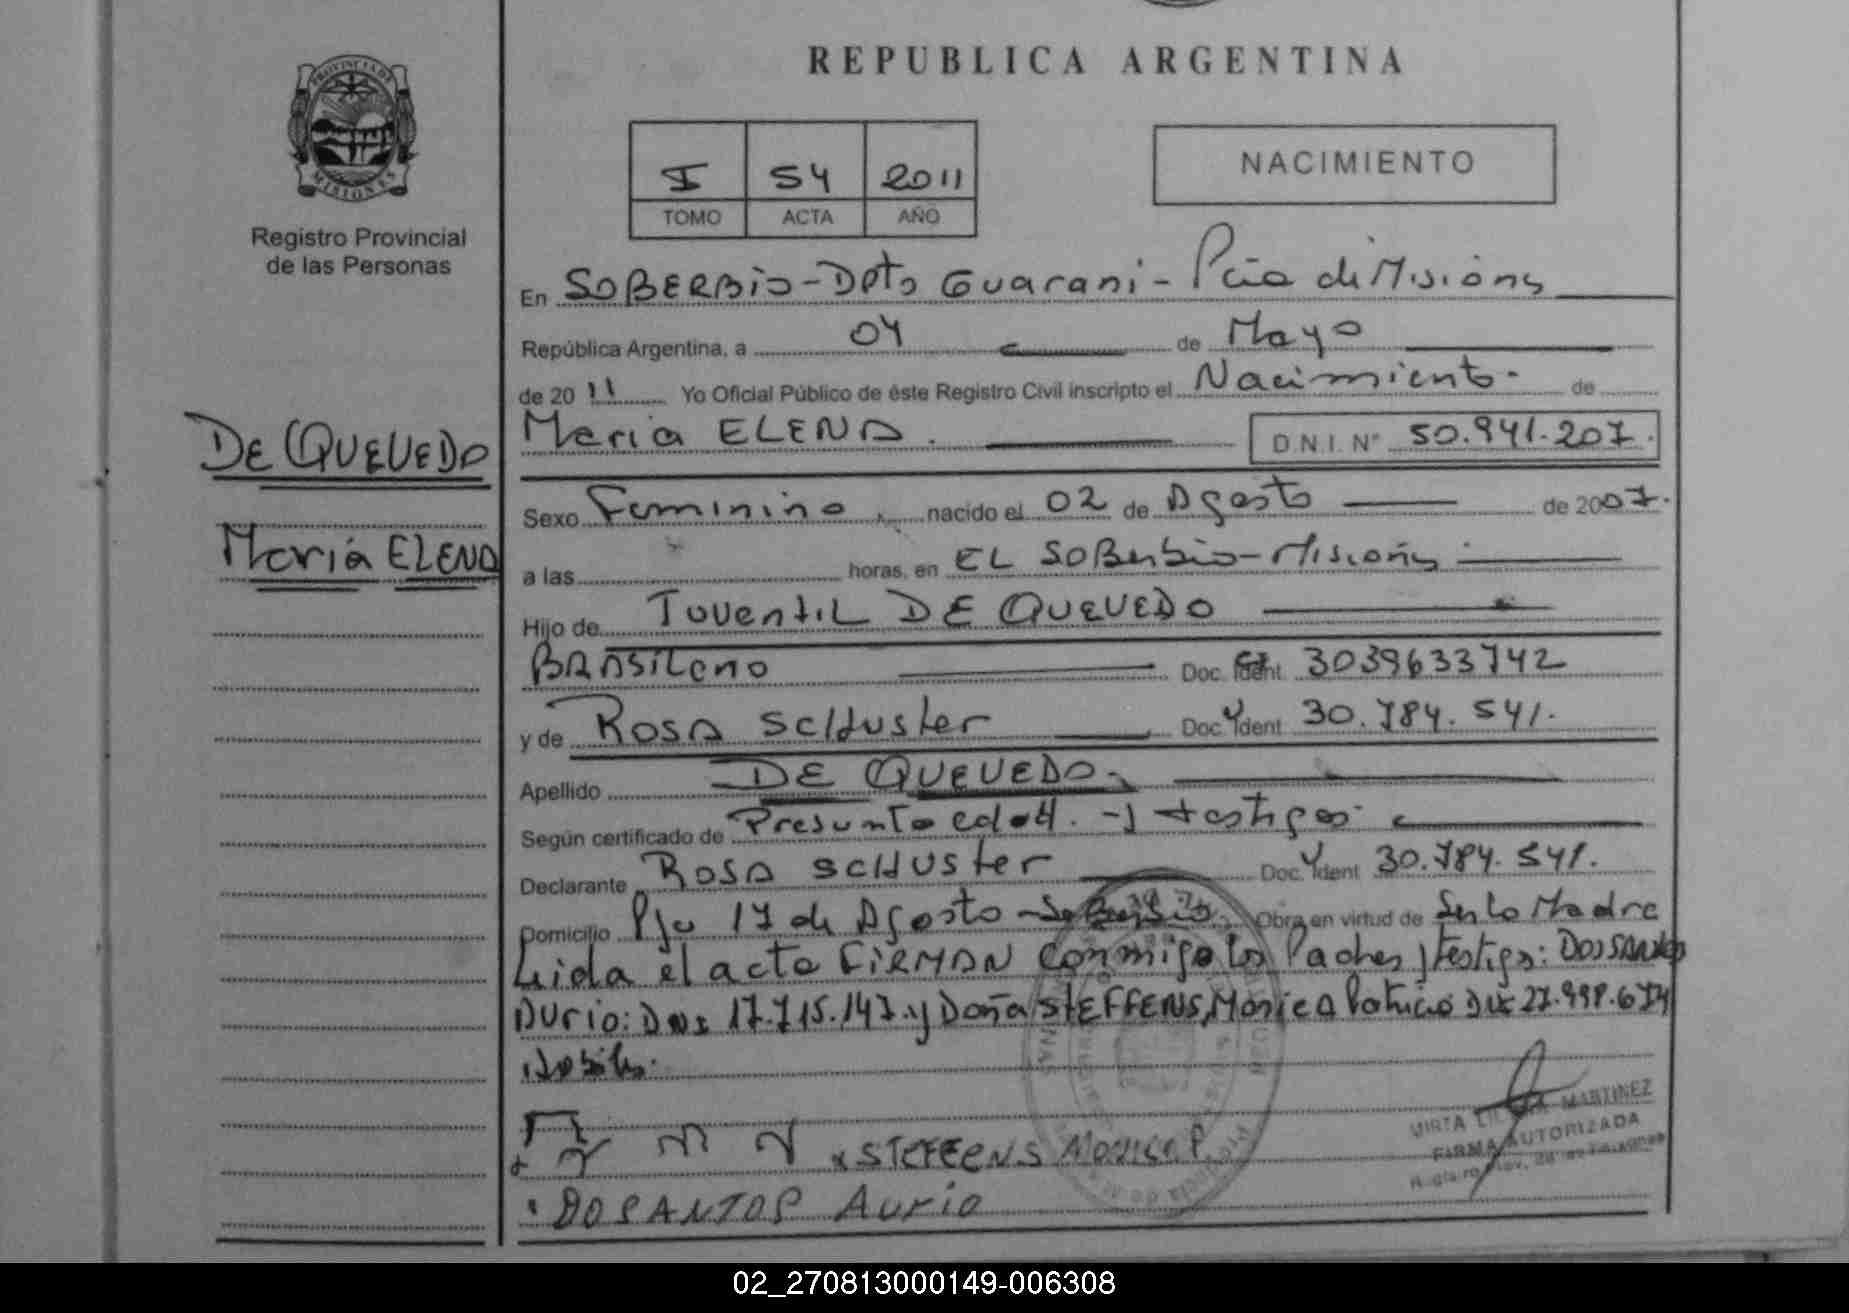 REPUBLICA ARGENTINA
PROVINCIA DE MISIONES
Registro Provincial
de las Personas
I 54 2011
TOMO ACTA AÑO
NACIMIENTO
En SOBERBIO - Dpto Guarani - Pcia de Misiones
República Argentina, a 04 de Mayo
de 2011 Yo Oficial Público de éste Registro Civil inscripto el Nacimiento. de
Maria ELENA. D.N.I. Nº 50.941.207.
DE QUEVEDO
Maria ELENA
Sexo Femenino nacido el 02 de Agosto de 2007.
a las horas, en EL SOBerbio - Misiones
Hijo de Juventil DE QUEVEDO
BRASILeno Doc. Ident. 3039633742
y de ROSA SCHuster Doc. Ident 30.784.541.
Apellido DE QUEVEDO.
Según certificado de Presunta edad. y testigos.
Declarante ROSA SCHUster Doc. Ident 30.784.541.
Domicilio 17 de Agosto - Soberbio. Obra en virtud de Ser la Madre
Leida el acta FIRMAN conmigo los Padres y testigos:
AURIO: DNI 17.715.147 y Doña STEFFENS, Monica Patricia DNI
STEFFENS MONICA P.
DOSANTOS Aurio
MIRTA LILIANA MARTINEZ
FIRMA AUTORIZADA
02_270813000149-006308